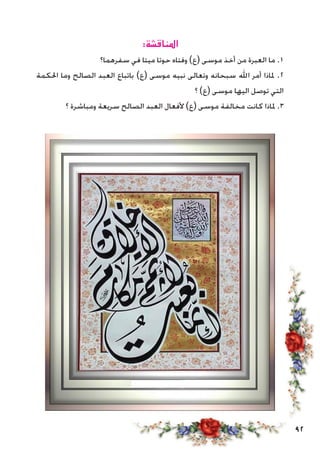 المناقشة:
١. ما العبرة من أخذ موسى (ع) وفتاه حوتا ميتا في سفرهما؟
٢. لماذا أمر الله سبحانه وتعالى نبيه موسى (ع) باتباع العبد الصالح وما الحكمة
التي توصل اليها موسى (ع) ؟
٣. لماذا كانت مخالفة موسى (ع) لأفعال العبد الصالح سريعة ومباشرة ؟
إنما بعثت لأتمم مكارم الأخلاق
٩٢